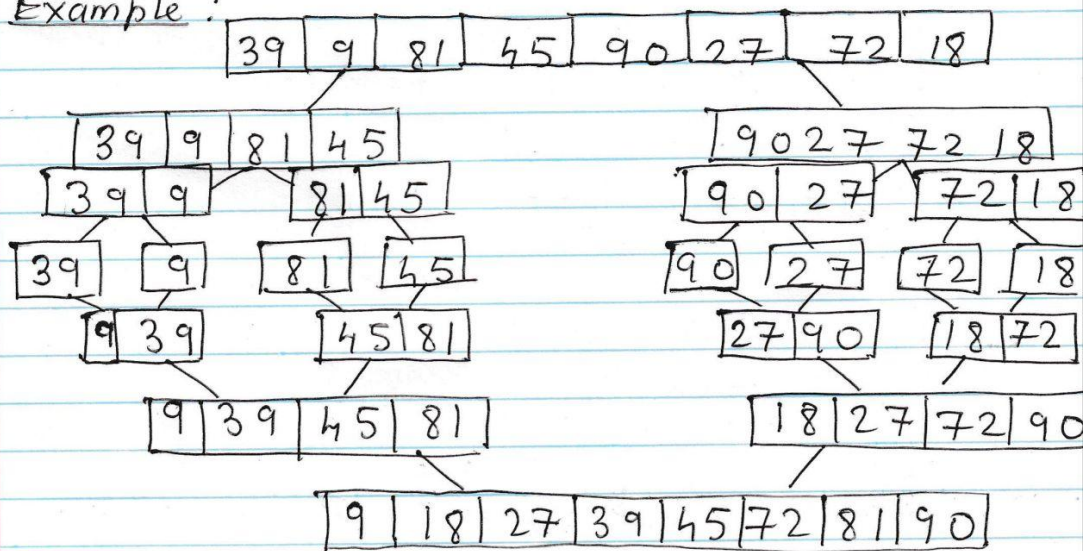 Example :
39 9 81 45 90 27 72 18
39 9 81 45 90 27 72 18
39 9 81 45 90 27 72 18
39 9 81 45 90 27 72 18
9 39 45 81 27 90 18 72
9 39 45 81 18 27 72 90
9 18 27 39 45 72 81 90